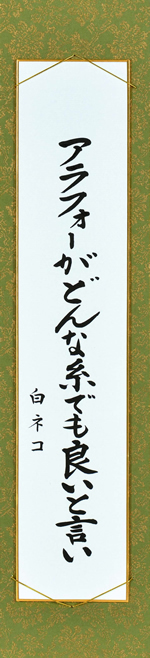 アラフォーがどんな糸でも良いと言い
白ネコ